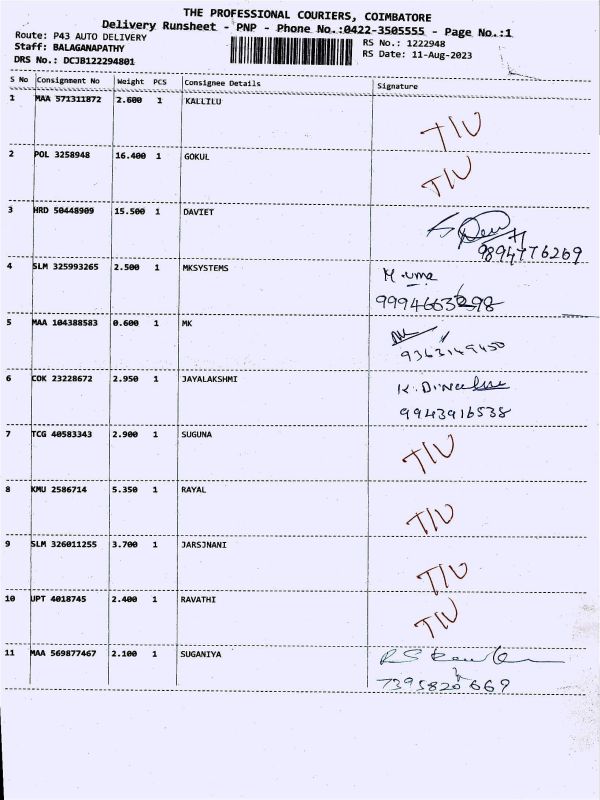 THE PROFESSIONAL COURIERS, COIMBATORE
Delivery Runsheet - PNP - Phone No.:0422-3505555 - Page No.:1
Route: P43 AUTO DELIVERY
RS No.: 1222948
Staff: BALAGANAPATHY
RS Date: 11-Aug-2023
DRS No.: DCJB122294801
S No Consignment No Weight PCS Consignee Details Signature
1 MAA 571311872 2.600 1 KALLILU
T/U
2 POL 3258948 16.400 1 GOKUL
T/U
3 HRD 50448909 15.500 1 DAVIET
9894776269
4 SLM 325993265 2.500 1 MKSYSTEMS
M.uma
5 MAA 104388583 0.600 1 MK
9363149450
6 COK 23228672 2.950 1 JAYALAKSHMI
9943916538
7 TCG 40583343 2.900 1 SUGUNA
T/U
8 KMU 2586714 5.350 1 RAYAL
T/U
9 SLM 326011255 3.700 1 JARSJNANI
T/U
10 UPT 4018745 2.400 1 RAVATHI
T/U
11 MAA 569877467 2.100 1 SUGANIYA
7395820669